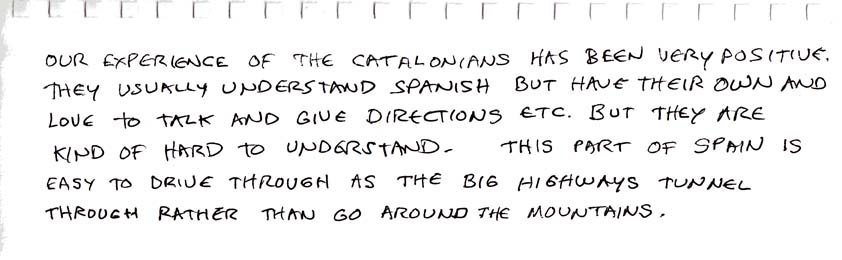 OUR EXPERIENCE OF THE CATALONIANS HAS BEEN VERY POSITIVE.
THEY USUALLY UNDERSTAND SPANISH BUT HAVE THEIR OWN AND
LOVE TO TALK AND GIVE DIRECTIONS ETC. BUT THEY ARE
KIND OF HARD TO UNDERSTAND. THIS PART OF SPAIN IS
EASY TO DRIVE THROUGH AS THE BIG HIGHWAYS TUNNEL
THROUGH RATHER THAN GO AROUND THE MOUNTAINS.